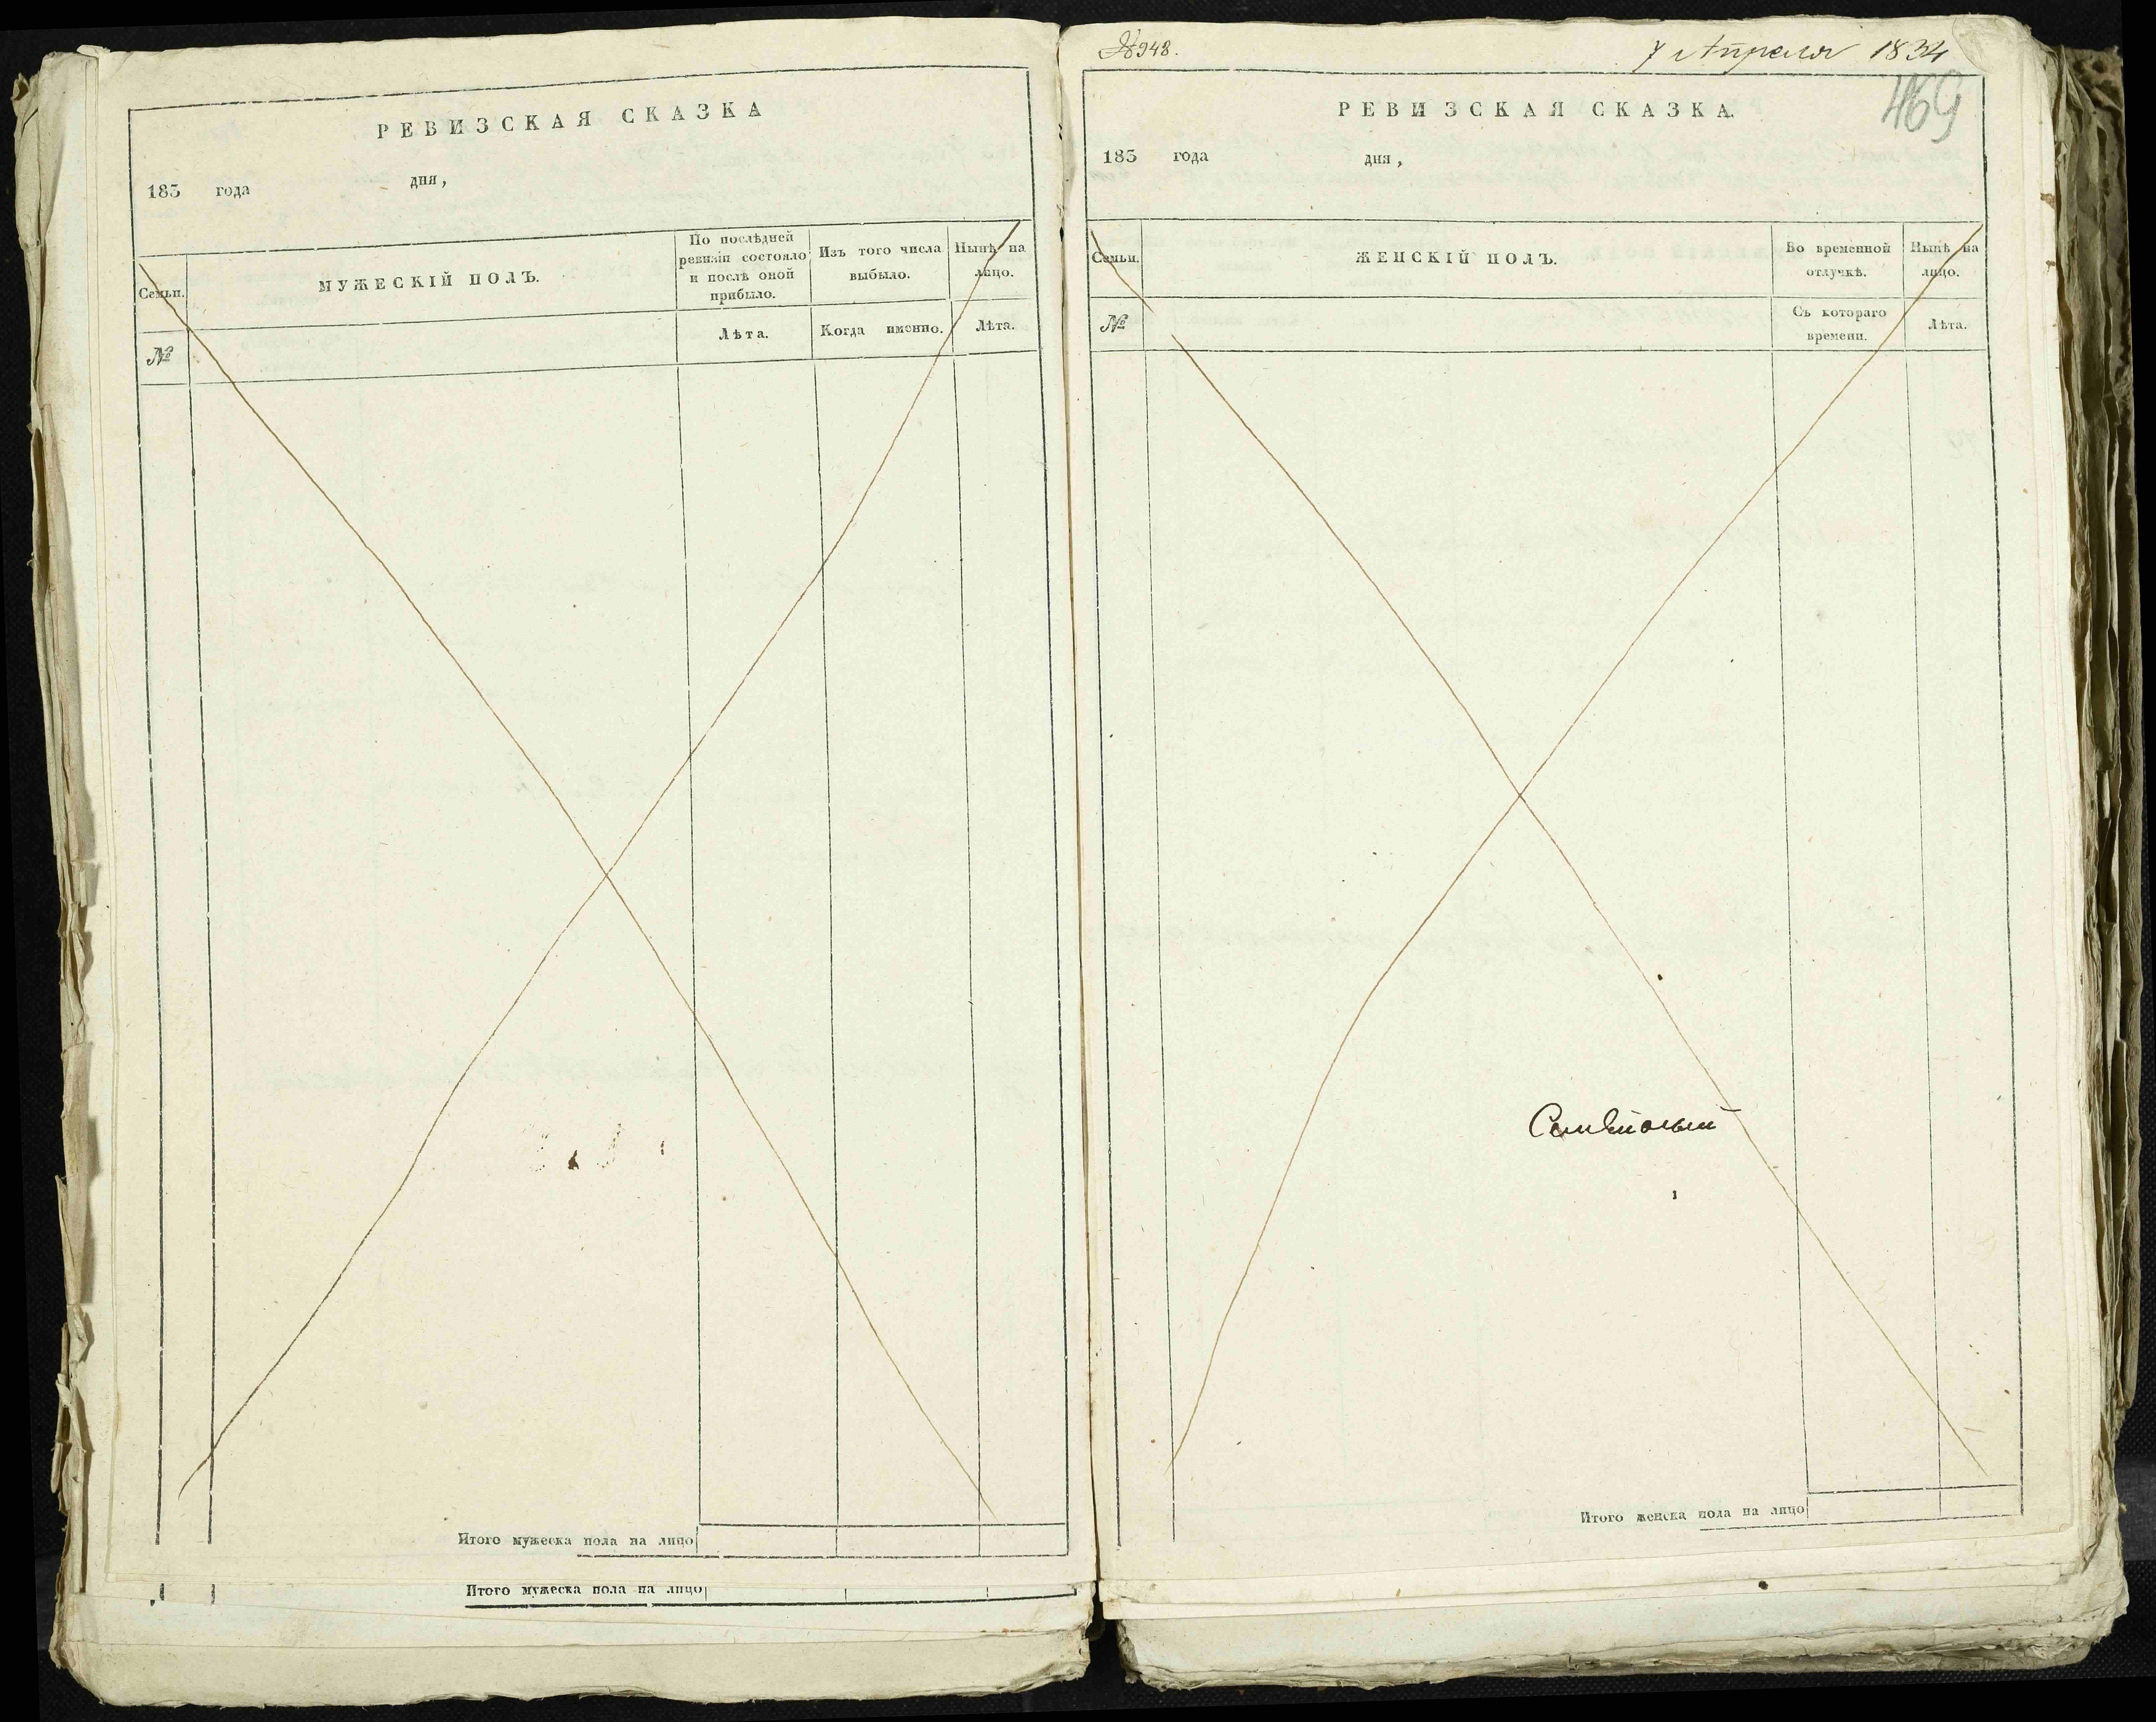 РЕВИЗСКАЯ СКАЗКА
183 года дня,
Семьи.
МУЖЕСКІЙ ПОЛЪ.
По послѣдней
ревизіи состояло
и послѣ оной
прибыло.
Изъ того числа
выбыло.
Нынѣ на
лицо.
№
Лѣта.
Когда именно.
Лѣта.
Итого мужеска пола на лицо
Итого мужеска пола на лицо
№948.
7 Апреля 1834
469
РЕВИЗСКАЯ СКАЗКА.
183 года дня,
Семьи.
ЖЕНСКІЙ ПОЛЪ.
Во временной
отлучкѣ.
Нынѣ на
лицо.
№
Съ котораго
времени.
Лѣта.
Итого женска пола на лицо